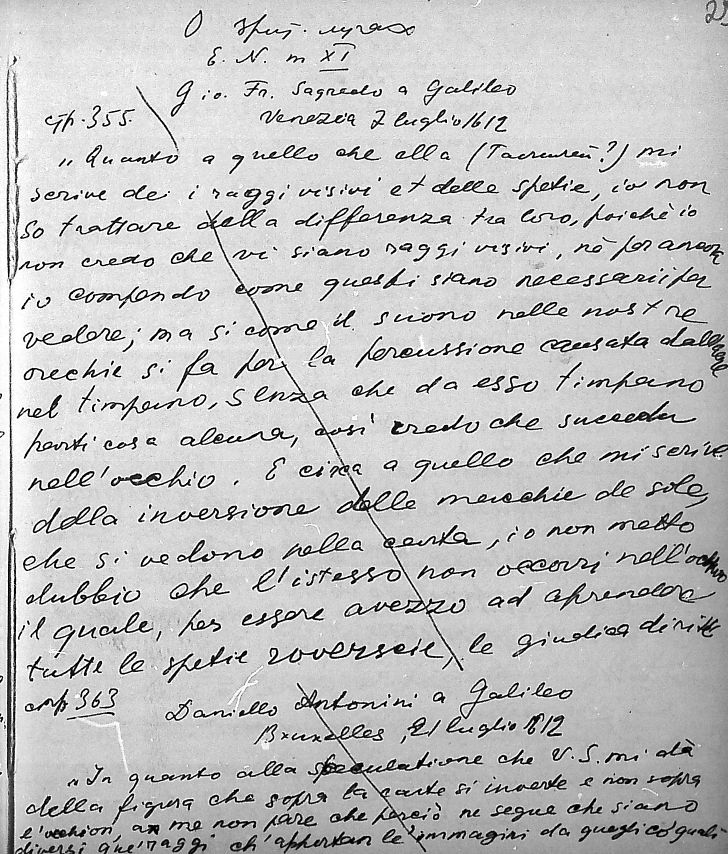 O
E. N. m XI
Gio. Fr. Sagredo a Galileo
стр. 355. Venezia 7 luglio 1612
„Quanto a quello che ella ( ?) mi
scrive dei i raggi visivi et delle spetie, io non
so trattare della differenza tra loro, poichè io
non credo che vi siano raggi visivi, nè per ancora
io compendo come questi siano necessarii per
vedere; ma si come il suono nelle nostre
orecchie si fa per la percussione causata dall'
nel timpano, senza che da esso timpano
parti cosa alcuna, così credo che succeda
nell'occhio. E circa a quello che mi scrive
della inversione delle macchie del sole,
che si vedono nella carta, io non metto
dubbio che l'istesso non occorri nell'occhio
il quale, per essere avezzo ad aprendere
tutte le spetie roverscie, le giudica diritte
стр 363 Daniello Antonini a Galileo
Bruxelles, 21 luglio 1612
„In quanto alla speculatione che V.S. mi dà
della figura che sopra la carte si inverte e non sopra
a me non pare che perciò ne segue che siano
diversi que' raggi ch'apportan le immagini da quegli co' quali